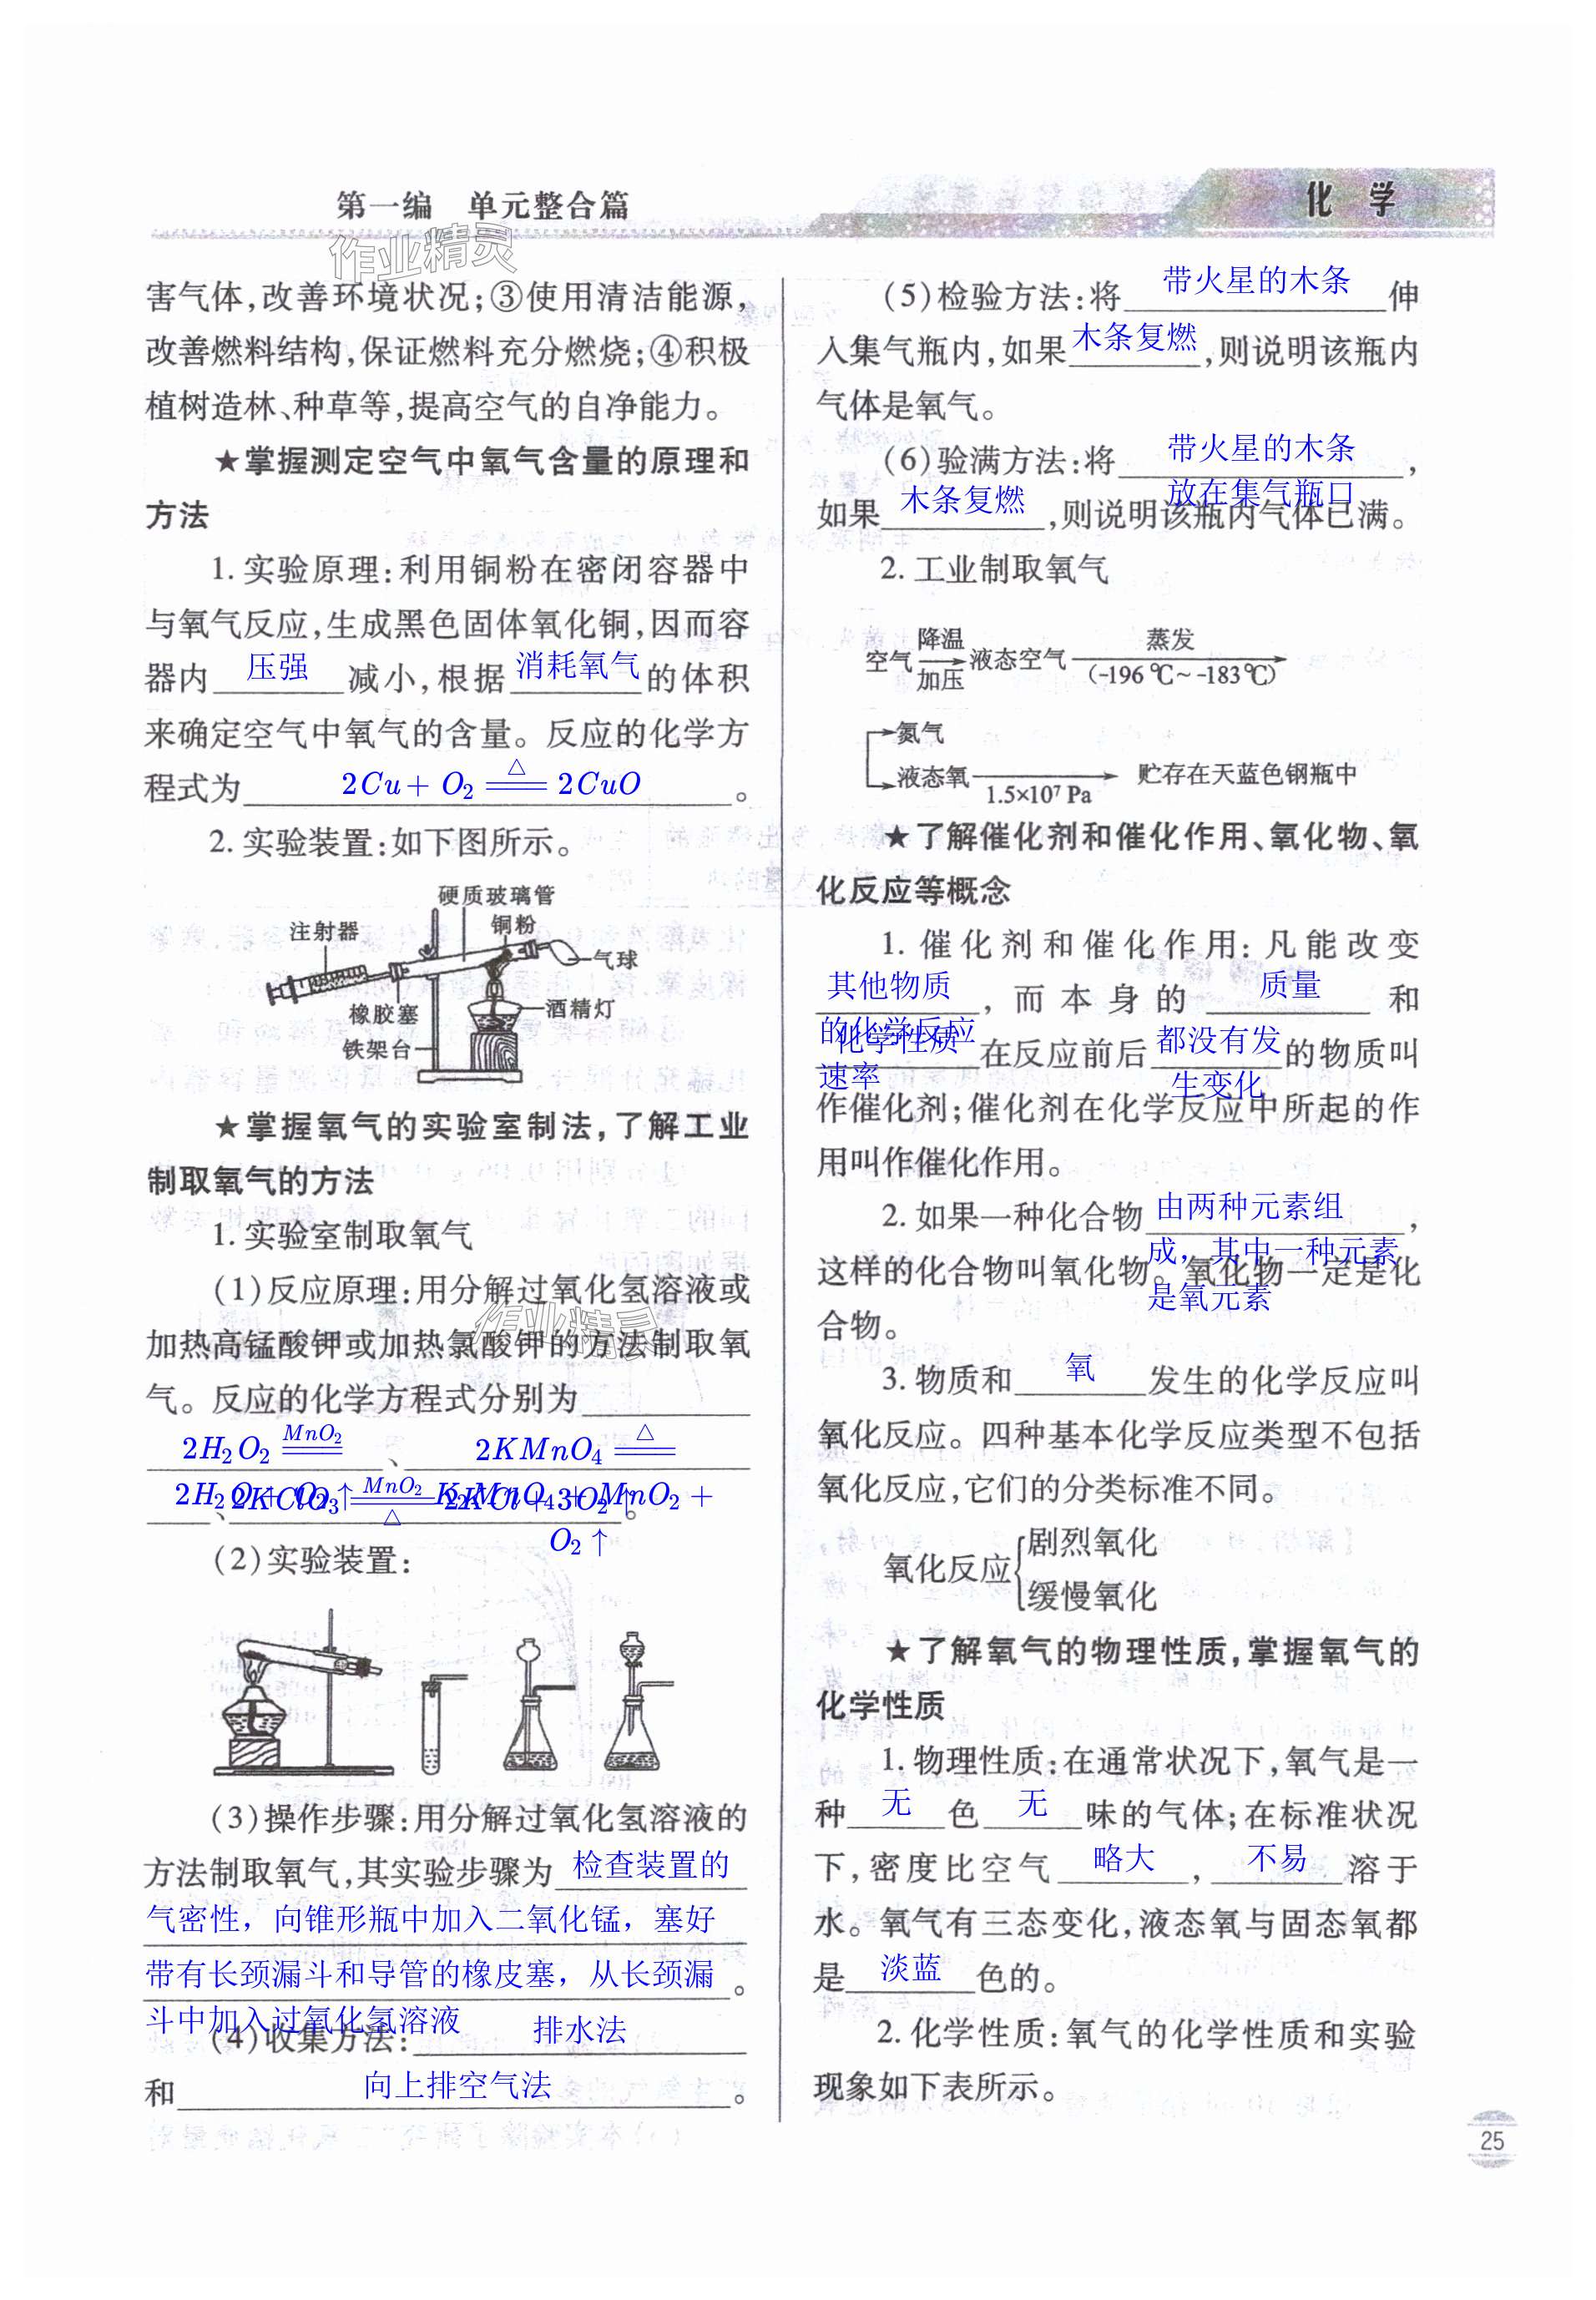 第一编 单元整合篇
化 学
作业精灵
害气体,改善环境状况;③使用清洁能源,
改善燃料结构,保证燃料充分燃烧;④积极
植树造林、种草等,提高空气的自净能力。
★掌握测定空气中氧气含量的原理和
方法
1. 实验原理:利用铜粉在密闭容器中
与氧气反应,生成黑色固体氧化铜,因而容
器内 压强 减小,根据 消耗氧气 的体积
来确定空气中氧气的含量。反应的化学方
程式为 2Cu + O₂ ══△══ 2CuO 。
2. 实验装置:如下图所示。
硬质玻璃管
铜粉
注射器
气球
橡胶塞
酒精灯
铁架台
★掌握氧气的实验室制法,了解工业
制取氧气的方法
1. 实验室制取氧气
(1)反应原理:用分解过氧化氢溶液或
作业精灵
加热高锰酸钾或加热氯酸钾的方法制取氧
气。反应的化学方程式分别为
2H₂O₂ ══MnO₂══ 、 2KMnO₄ ══△══
2H₂O + O₂↑ 、 2KClO₃ ══MnO₂/△══ 2KCl + 3O₂↑ K₂MnO₄ + MnO₂ + 。
O₂↑
(2)实验装置:
(3)操作步骤:用分解过氧化氢溶液的
方法制取氧气,其实验步骤为 检查装置的
气密性，向锥形瓶中加入二氧化锰，塞好
带有长颈漏斗和导管的橡皮塞，从长颈漏 。
斗中加入过氧化氢溶液
(4)收集方法: 排水法
和 向上排空气法 。
(5)检验方法:将 带火星的木条 伸
入集气瓶内,如果 木条复燃 ,则说明该瓶内
气体是氧气。
(6)验满方法:将 带火星的木条 ,
放在集气瓶口
如果 木条复燃 ,则说明该瓶内气体已满。
2. 工业制取氧气
空气 降温 加压 液态空气 蒸发 (-196 ℃~-183℃)
氮气
液态氧 1.5×10⁷ Pa 贮存在天蓝色钢瓶中
★了解催化剂和催化作用、氧化物、氧
化反应等概念
1. 催化剂和催化作用:凡能改变
其他物质 ,而本身的 质量 和
的化学反应
化学性质 在反应前后 都没有发 的物质叫
速率 生变化
作催化剂;催化剂在化学反应中所起的作
用叫作催化作用。
2. 如果一种化合物 由两种元素组 ,
成，其中一种元素
这样的化合物叫氧化物。氧化物一定是化
是氧元素
合物。
3. 物质和 氧 发生的化学反应叫
氧化反应。四种基本化学反应类型不包括
氧化反应,它们的分类标准不同。
氧化反应{剧烈氧化
缓慢氧化
★了解氧气的物理性质,掌握氧气的
化学性质
1. 物理性质:在通常状况下,氧气是一
种 无 色 无 味的气体;在标准状况
下,密度比空气 略大 , 不易 溶于
水。氧气有三态变化,液态氧与固态氧都
是 淡蓝 色的。
2. 化学性质:氧气的化学性质和实验
现象如下表所示。
25